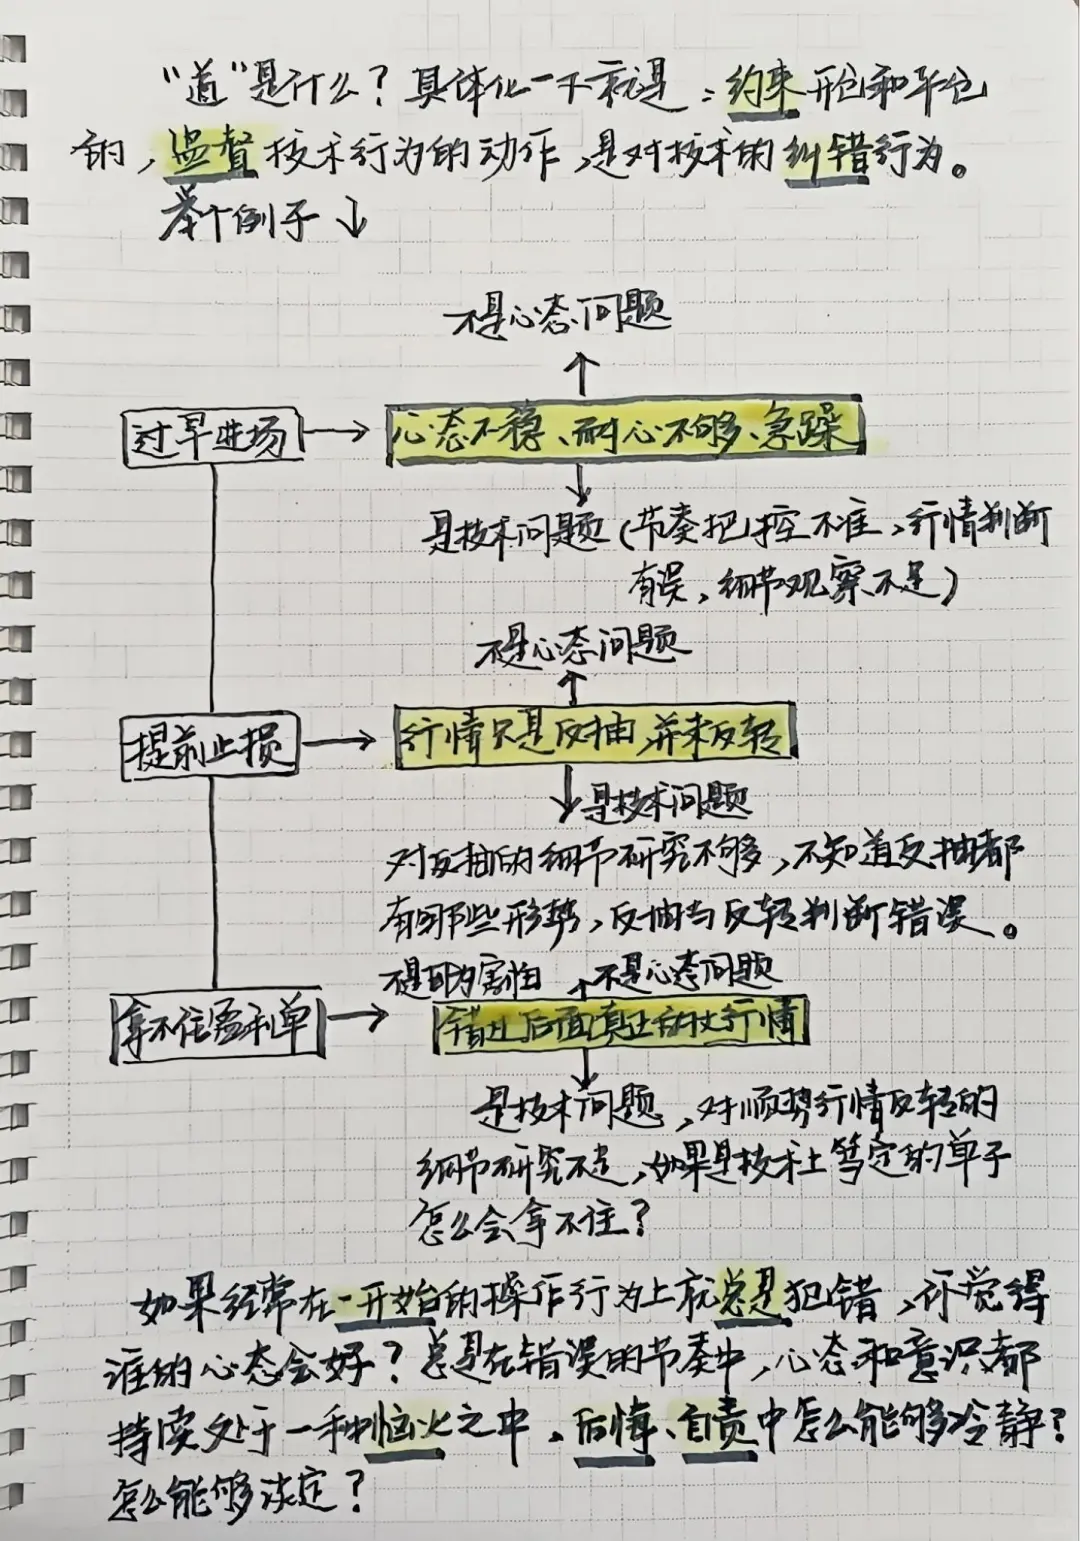 “道”是什么？具体化一下就是：约束开仓和平仓
的，监督技术行为的动作，是对技术的纠错行为。
举个例子↓
不是心态问题
过早进场
心态不稳、耐心不够、急躁
是技术问题（节奏把控不准，行情判断
有误，细节观察不足）
不是心态问题
提前止损
行情只是反抽，并未反转
是技术问题
对反抽的细节研究不够，不知道反抽都
有那些形势，反抽与反转判断错误。
不是因为害怕
不是心态问题
拿不住盈利单
错过后面真正的大行情
是技术问题，对顺势行情反转的
细节研究不足，如果是技术上笃定的单子
怎么会拿不住？
如果经常在一开始的操作行为上就总是犯错，你觉得
谁的心态会好？总是在错误的节奏中，心态和意识都
持续处于一种恼火之中、后悔、自责中怎么能够冷静？
怎么能够淡定？